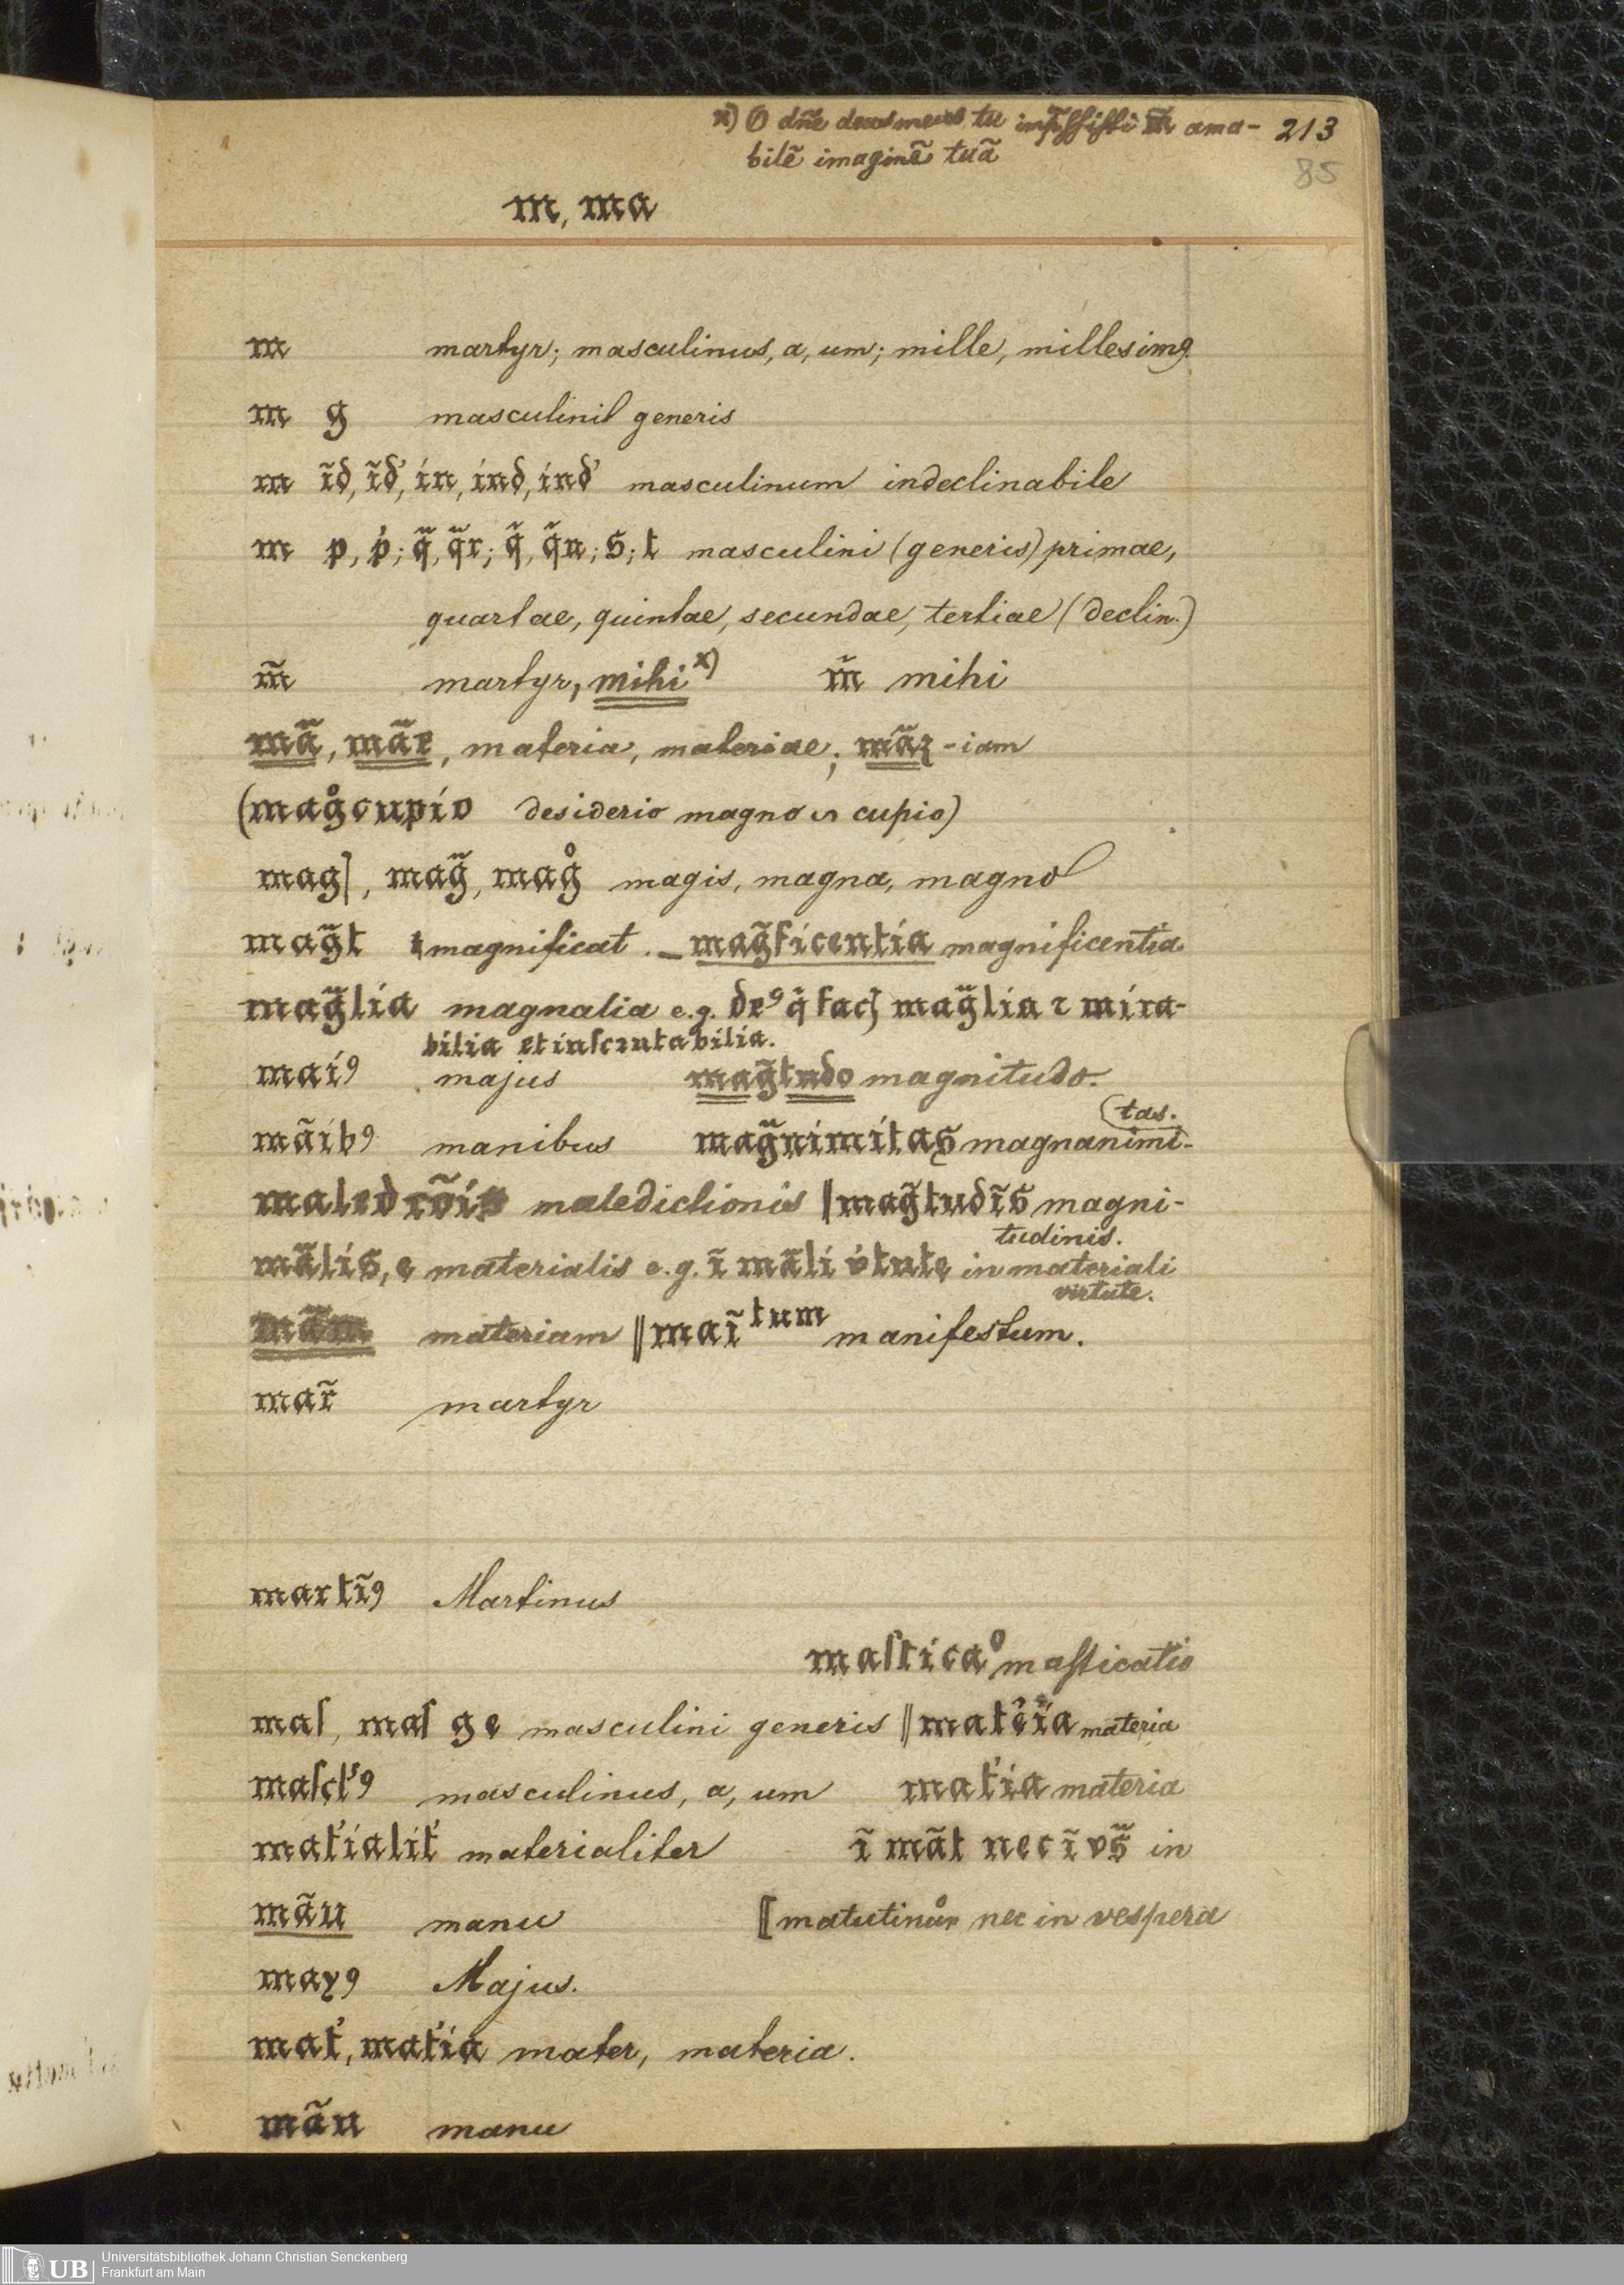 x) O dn̄e deus meus tu imp̄ssisti m̄ ama- 213
bilē imaginē tuā
85
m, ma
m martyr; masculinus, a, um; mille, millesimꝯ
m g masculini generis
m ĩd, ĩd', in, ind, ind' masculinum indeclinabile
m p, ṗ; q̃, q̃r; q̃, q̃n; s; t masculini (generis) primae,
quartae, quintae, secundae, tertiae (declin.)
m̃ martyr, mihi x) m̃ mihi
mã, mãe, materia, materiae; mãꝫ -iam
(mag̊cupio desiderio magno cupio)
mag], mag̃, mag̊ magis, magna, magno
mag̃t magnificat. – mag̃ficentia magnificentia
mag̃lia magnalia e.g. deꝯ q̃ fac mag̃lia ⁊ mira-
bilia et inscrutabilia.
maiꝯ majus mag̃tudo magnitudo.
mãibꝯ manibus mag̃nimitas magnanimi-
(tas.
maledcõis maledictionis || mag̃tudĩs magni-
tudinis.
mãlis, e materialis e.g. ĩ mãli v̇tute in materiali
virtute.
mãm materiam || maĩtum manifestum.
mar̃ martyr
martĩꝯ Martinus
maſticaº maſticatio
maſ, maſ ge masculini generis || matẽia materia
maſcl'ꝯ masculinus, a, um mat'ia materia
mat'ialit' materialiter ĩ mãt nec ĩ vs̃ in
mãu manu [matutina nec in vespera
mayꝯ Majus.
mat', mat'ia mater, materia.
mãu manu
UB Universitätsbibliothek Johann Christian Senckenberg
Frankfurt am Main